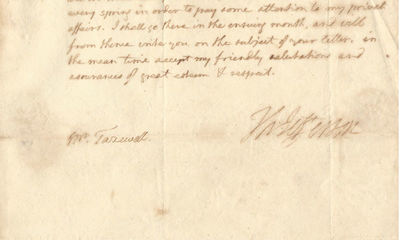 every spring in order to pay some attention to my private
affairs. I shall go there in the ensuing month, and will
from thence write you on the subject of your letter. in
the mean time accept my friendly salutations and
assurances of great esteem & respect.
Th Jefferson
Mr. Tazewell.